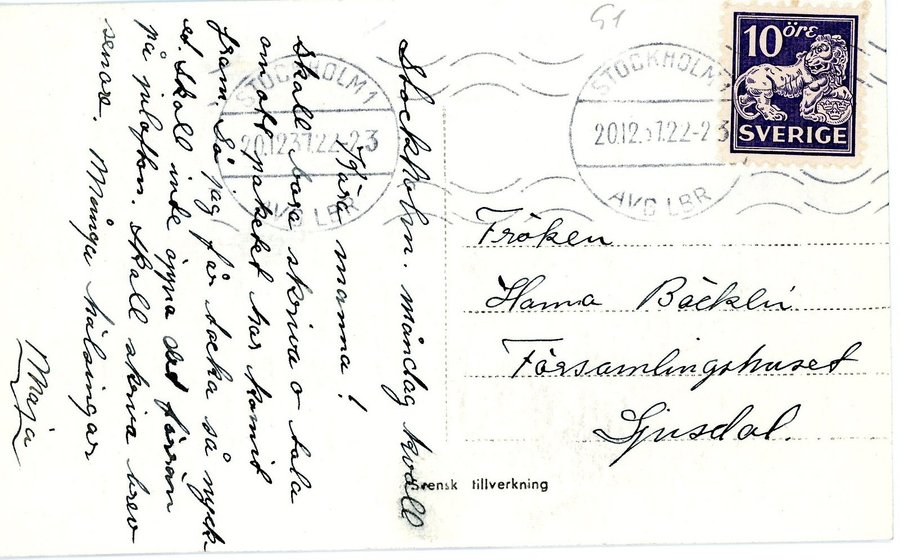 Stockholm. måndag kväll
Kära mamma!
Skall bara skriva o tala
om att paketet har komit
fram. Så jag får tacka så myck-
et. Skall inte öppna det förrän
på julafton. Skall skriva brev
senare. Många hälsningar
Maja
51
STOCKHOLM 1
20.12.37.22-23
AVG LBR
STOCKHOLM 1
20.12.37.22-23
AVG LBR
10 öre
SVERIGE
Fröken
Hanna Bäcklin
Församlingshuset
Ljusdal.
Svensk tillverkning